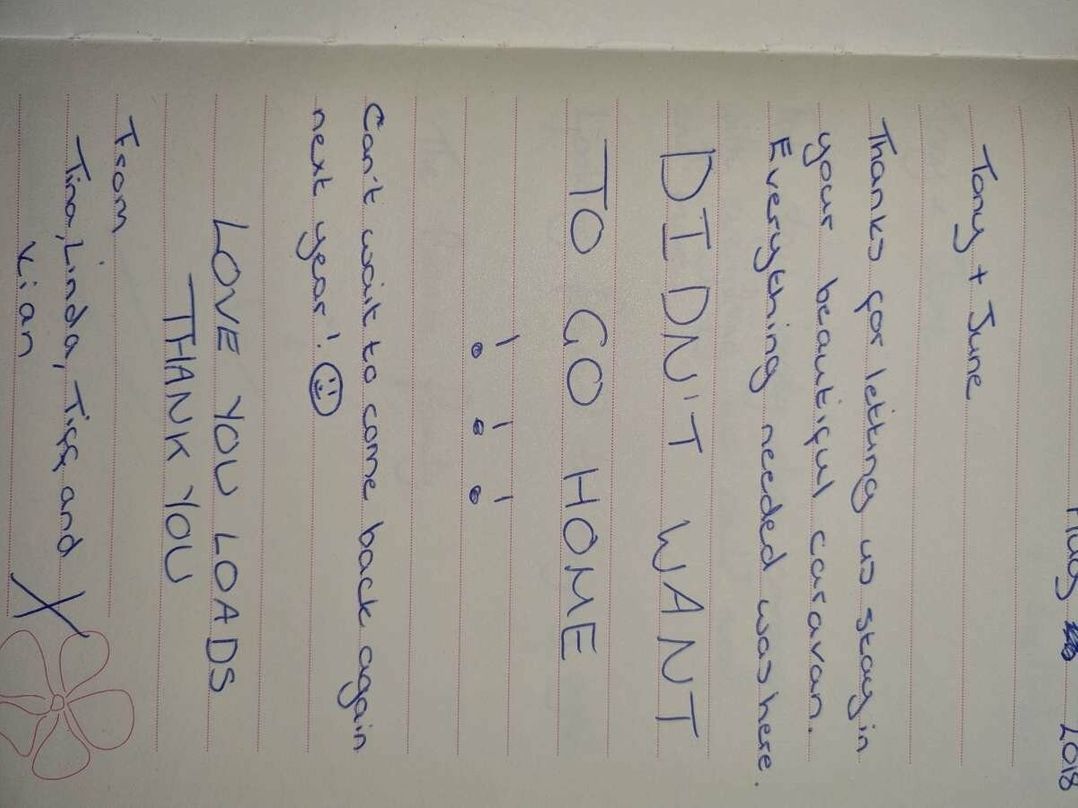 2018
Tony + June
Thanks for letting us stay in
your beautiful caravan.
Everything needed was here.
DIDN'T WANT
TO GO HOME
! ! !
Can't wait to come back again
next year! ☺
LOVE YOU LOADS
THANK YOU
From
Tina, Linda, Tiff and
Kian X